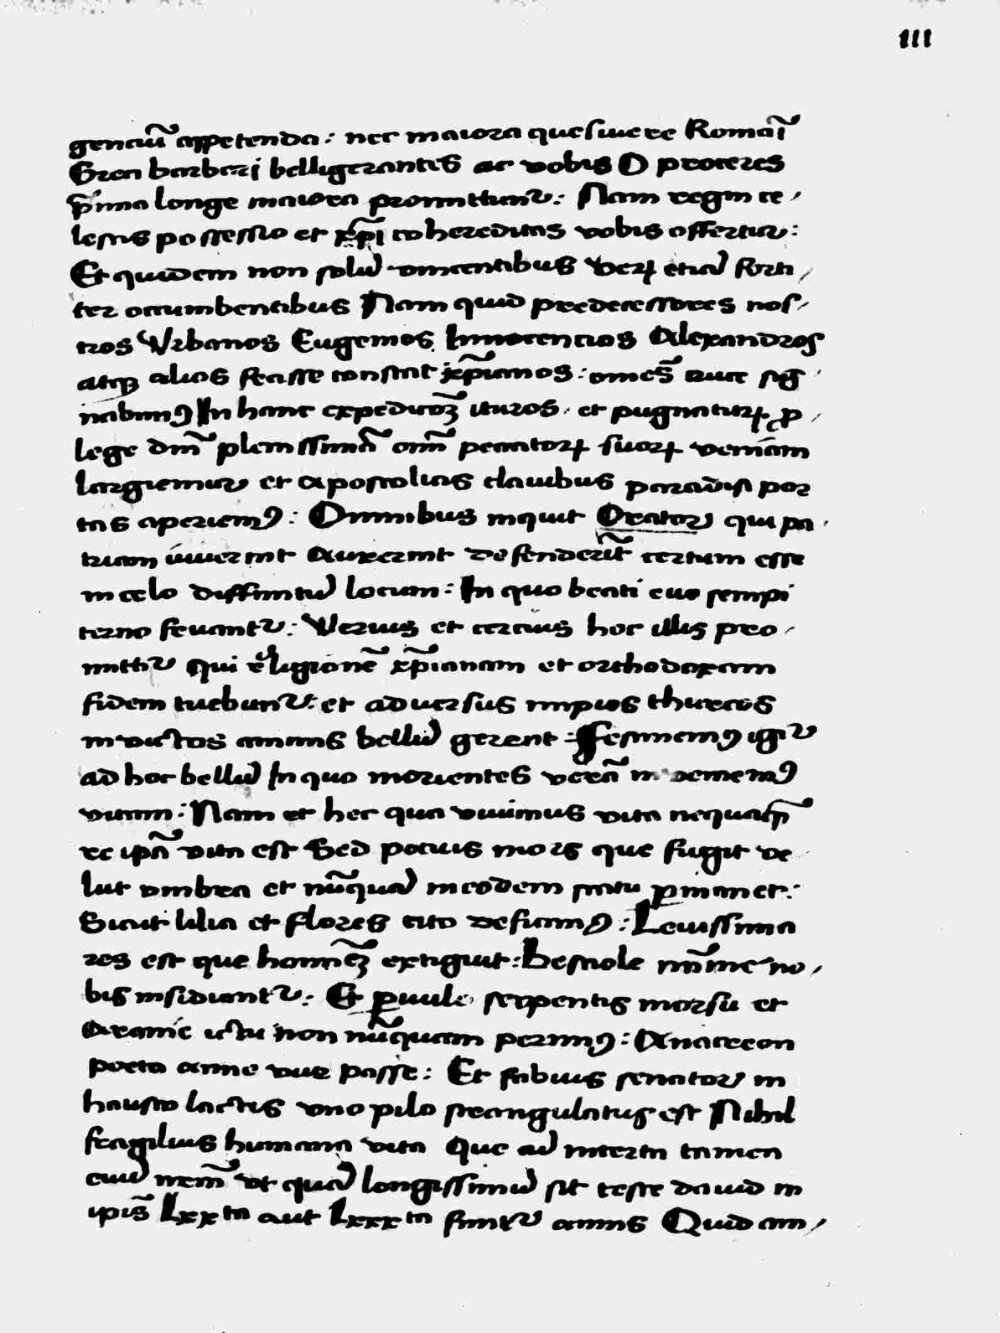 III
genciũ appetenda: nec maiora quesiuere Romãi
Greci barberi belligerantes ac vobis O proceres
p̃ima longe maiora promittunt᷑: Nam regni ce,
lestis possessio et xp̃i cohereditas vobis offertur:
Et quidem non solũ vincentibus Verꝝ etiã forti,
ter occumbentibus Nam quid predecessores nos,
tros Vrbanos Eugenios Innocencios Alexandros
atqꝫ alios fecisse constat xp̃ianos: omẽs cruce sig,
nabimꝰ In hanc expedicõꝫ ituros, et pugnaturꝝ ꝓ,
lege dm̃ plenissimã om̃ peccatorꝝ suorꝝ veniam
largiemur et apostolicis clauibus paradisi por
tas aperiemꝰ: Omnibus inquit Orator qui pa,
triam iuuerint Auxerint defenderĩt certum esse
in celo diffinitũ locum: In quo beati euo sempi
terno fruant᷑: Verius et cercius hoc illis pro,
mittit᷑ qui religionẽ xp̃ianam et orthodoxam
fidem tuebunt᷑: et aduersus impios thurcos
inuictos animis bellũ gerent: Festinemꝰ igit᷑
ad hoc bellũ In quo morientes verã inueniemꝰ
vitam: Nam et hec qua viuimus vita nequaq̃
re ip̃a vita est Sed pocius mors que fugit ve
lut vmbra et nũquã in eodem statu ꝑmanet:
Sicut lilia et flores cito deficimꝰ: Leuissima
res est que hominẽꝫ extiguit: Bestiole mĩme no,
bis insidiant᷑: Et ꝑuule serpentis morsu et
Aranie ictu non nũquam perimꝰ: Anacreon
poeta acine vue passe: Et fabius senator in
hausto lactis vno pilo strangulatus est Nihil
fragilius humana vita Que ad incerta tamen
cuiũ nem̃ vt quã longissimũ sit teste dauid in
ip̃is Lxxta aut Lxxxta finit᷑ annis Quid am,